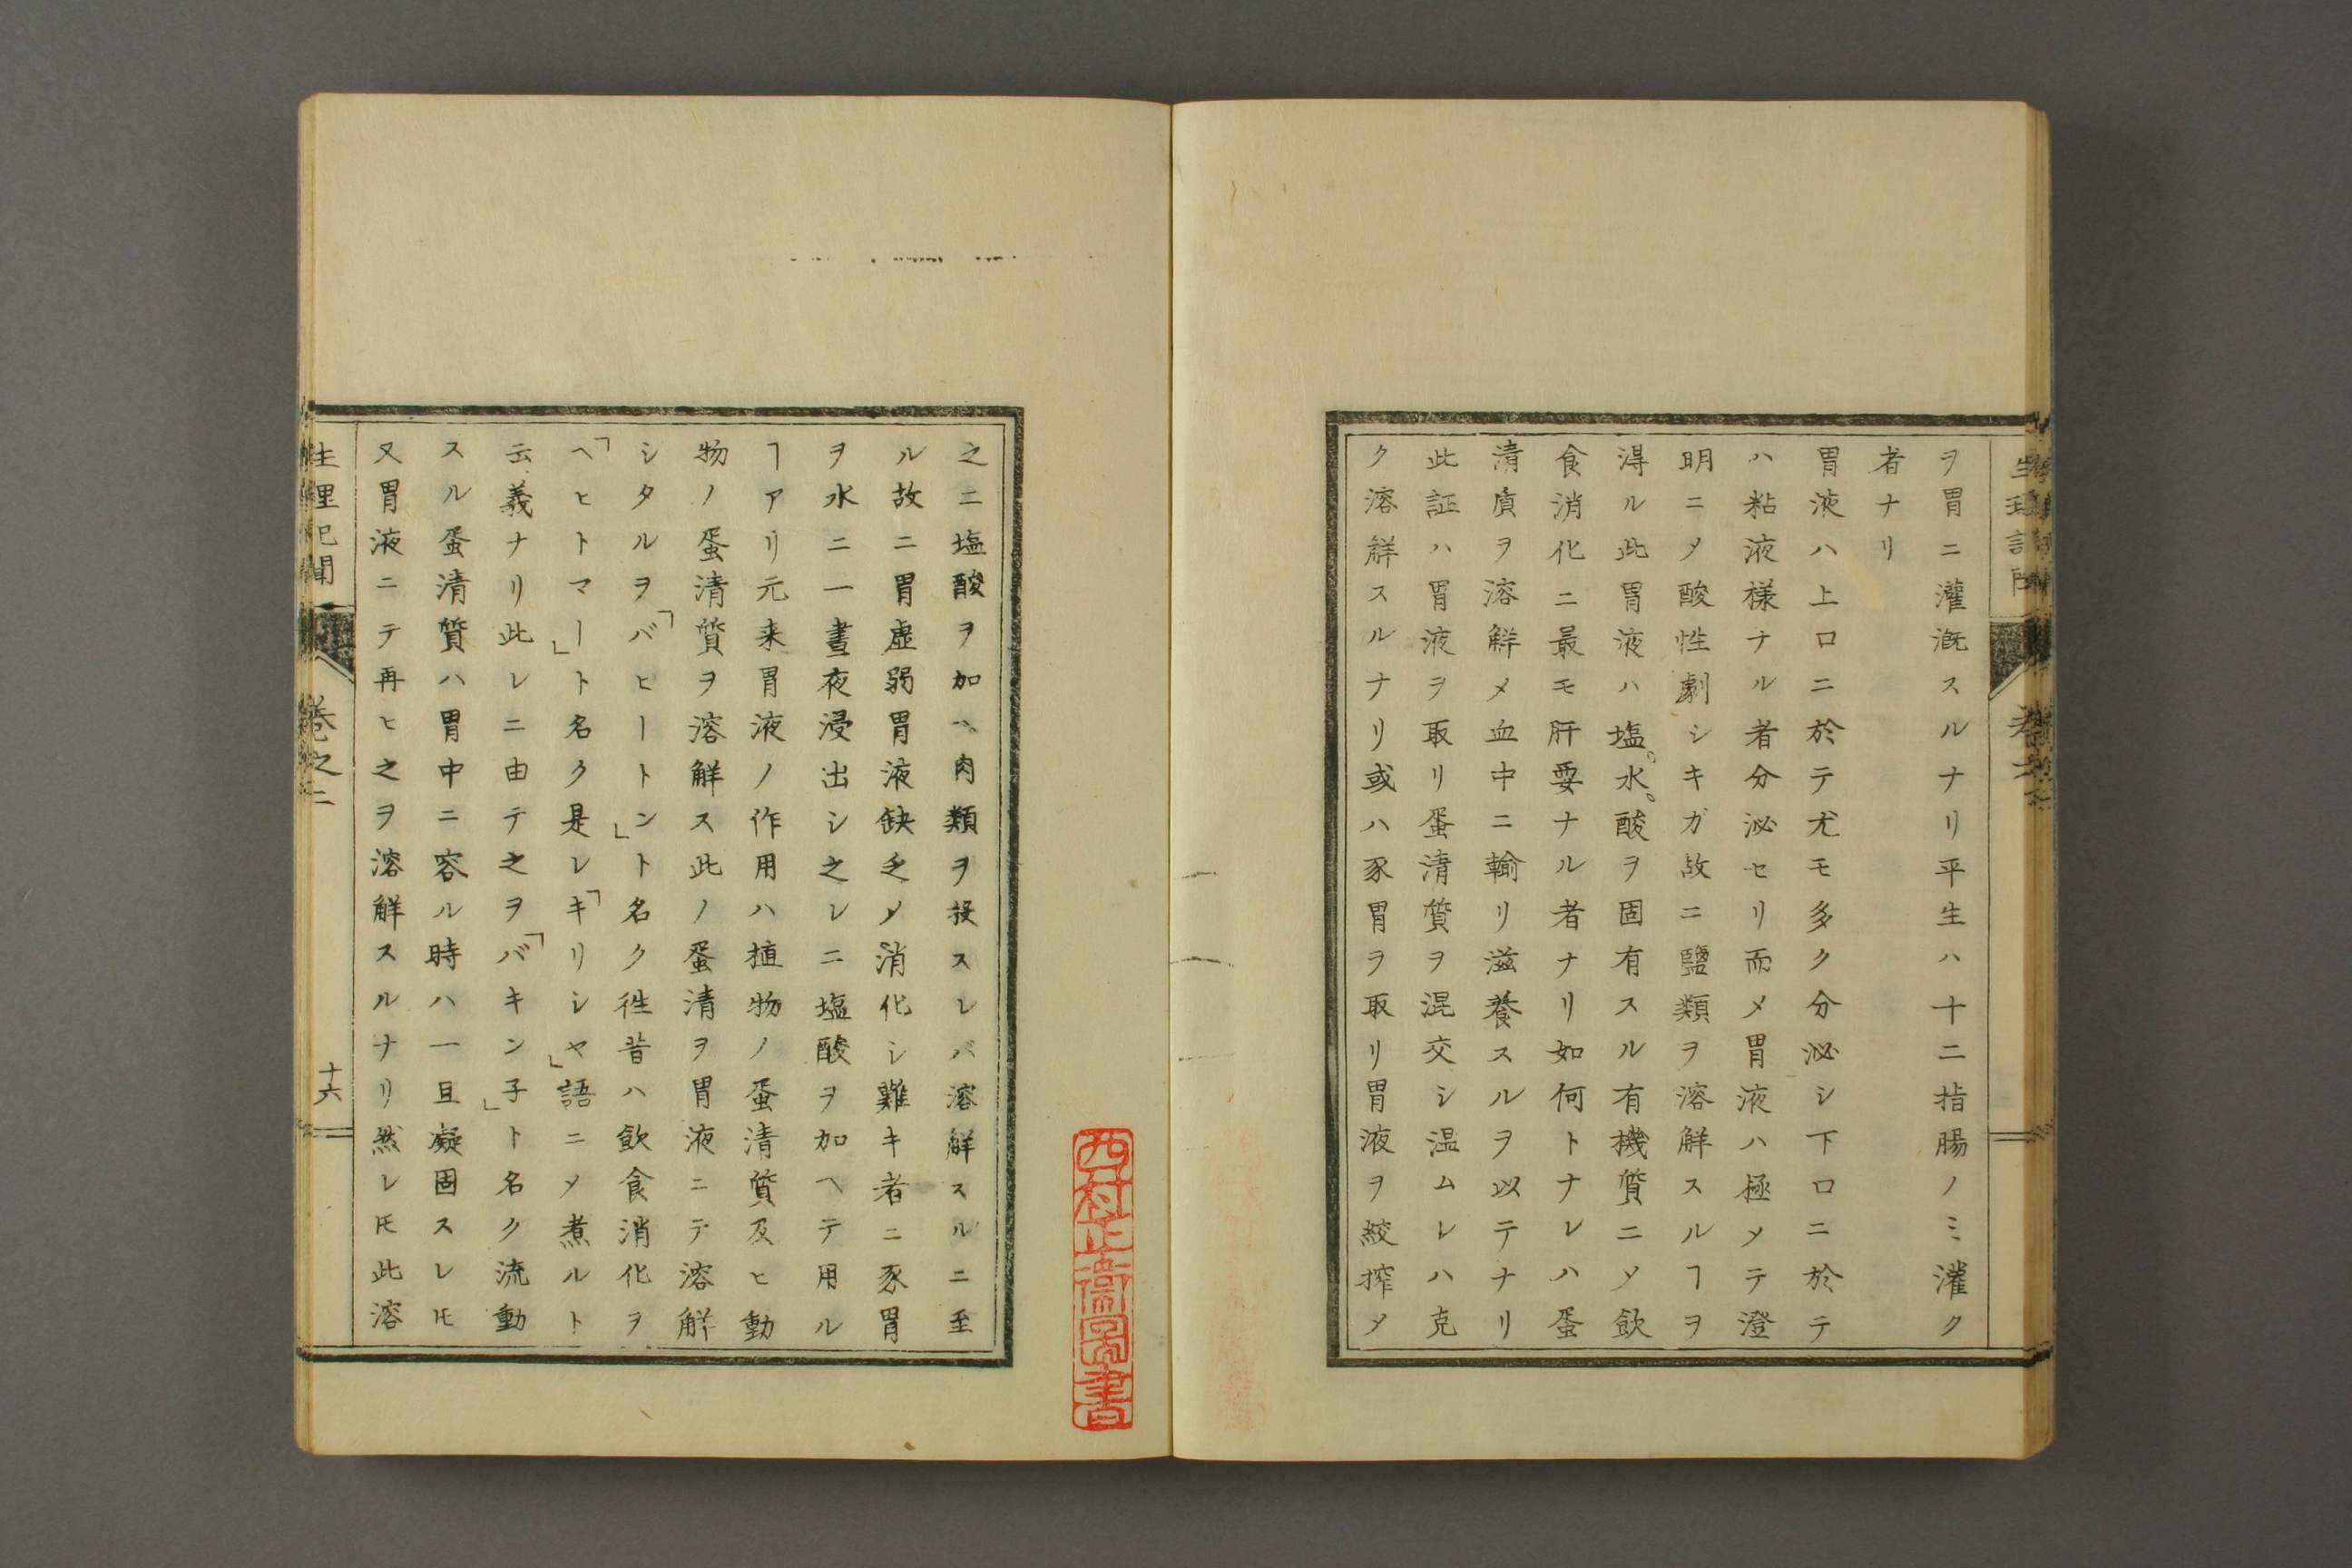 ヲ胃ニ灌漑スルナリ平生ハ十二指腸ノミ灌ク
者ナリ
胃液ハ上口ニ於テ尤モ多ク分泌シ下口ニ於テ
ハ粘液様ナル者分泌セリ而メ胃液ハ極メテ澄
明ニメ酸性劇シキガ故ニ鹽類ヲ溶解スルヿヲ
得ル此胃液ハ塩水酸ヲ固有スル有機質ニメ飲
食消化ニ最モ肝要ナル者ナリ如何トナレハ蛋
清質ヲ溶解メ血中ニ輸リ滋養スルヲ以テナリ
此証ハ胃液ヲ取リ蛋清質ヲ混交シ温ムレハ克
ク溶解スルナリ或ハ豕胃ヲ取リ胃液ヲ絞搾メ
之ニ塩酸ヲ加ヘ肉類ヲ投スレバ溶解スルニ至
ル故ニ胃虚弱胃液缺乏メ消化シ難キ者ニ豕胃
ヲ水ニ一晝夜浸出シ之レニ塩酸ヲ加ヘテ用ル
ヿアリ元来胃液ノ作用ハ植物ノ蛋清質及ヒ動
物ノ蛋清質ヲ溶解ス此ノ蛋清ヲ胃液ニテ溶解
シタルヲ「バヒートン」ト名ク徃昔ハ飲食消化ヲ
「ヘヒトマー」ト名ク是レ「キリシヤ」語ニメ煮ルト
云義ナリ此レニ由テ之ヲ「バキン子」ト名ク流動
スル蛋清質ハ胃中ニ容ル時ハ一旦凝固スレ𪜈
又胃液ニテ再ヒ之ヲ溶解スルナリ然レ𪜈此溶
生理記聞
巻之二
十六
西村正衞図書